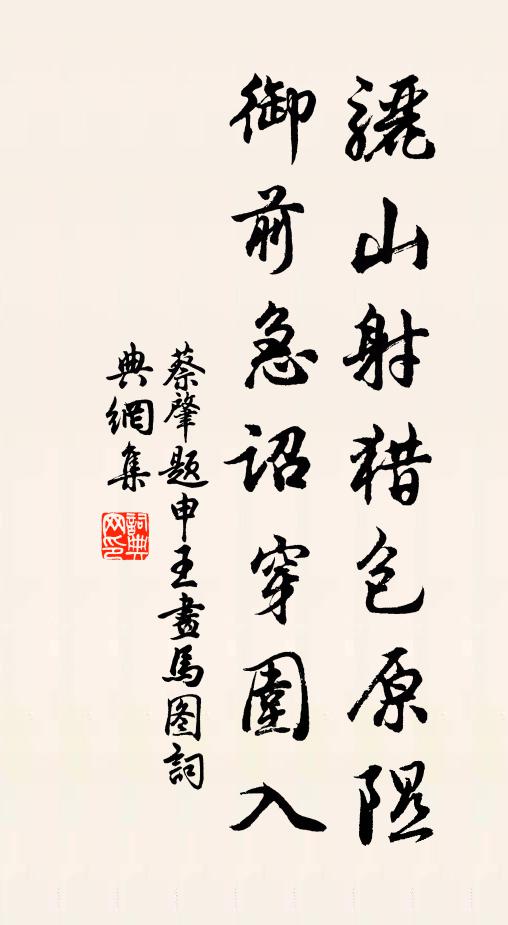 驪山射猎包原隰
御前急詔穿圍入
蔡肇题申王畫馬图詞
典網集
詞典網印